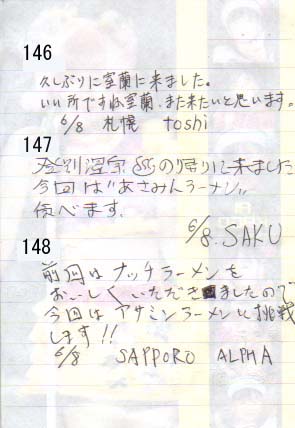 146
久しぶりに室蘭に来ました。
いい所ですね室蘭、また来たいと思います。
6/8 札幌 toshi
147
登別温泉♨の帰りに来ました
今回は"あさみんラーメン"
食べます。
6/8. SAKU
148
前回はナッチラーメンを
おいしくいただきましたので
今回はアサミンラーメンに挑戦
します!!
6/8 SAPPORO ALPHA